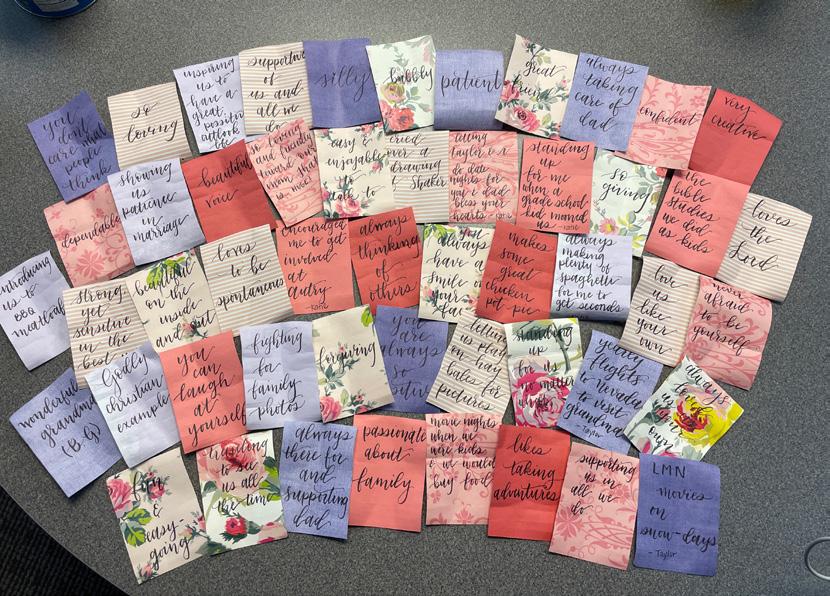 you
don't
care what
people
think
so
loving
inspiring
us to
have a
great
positive
outlook
supportive
of
us and
all we
do
silly
bubbly
patient
great
friend
always
taking
care of
dad
confident
very
creative
dependable
showing
us
patience
in
marriage
beautiful
voice
so loving
and
our
mom
easy &
enjoyable
to
talk to
cried
over a
drawing
& Shaker
letting
Taylor & I
do date
nights for
you & dad
bless your
hearts
- Katie
standing
up
for me
when a
grade school
kid
me
- Katie
so
giving
the
bible
studies
we did
as kids
loves
the
Lord
introducing
us to
BBQ
meatloaf
strong
yet
sensitive
in the
best
beautiful
on the
inside
and out
loves
to be
spontaneous
encouraged
me to get
involved
at
Autry
- Katie
always
thinking
of
others
you
always
have a
smile on
your
face
makes
some
great
chicken
pot pie
always
making
plenty of
spaghetti
for me to
get seconds
love
us like
your
own
never
afraid
to be
yourself
wonderful
grandma
(B.G)
Godly
christian
example
you
can
laugh
at
yourself
fighting
for
family
photos
forgiving
you
are
always
so
positive
letting
us play
on
hay
bales for
pictures
standing
up
for us
no matter
what
yearly
flights
to Nevada
to visit
grandma
- Taylor
always
our
fun
&
easy-
going
traveling
to see
us all
the time
always
there for
and
supporting
dad
passionate
about
family
movie nights
when we
were kids
& we would
buy food
likes
taking
adventures
supporting
us in
all we
do
LMN
movies
on
snow-days
- Taylor